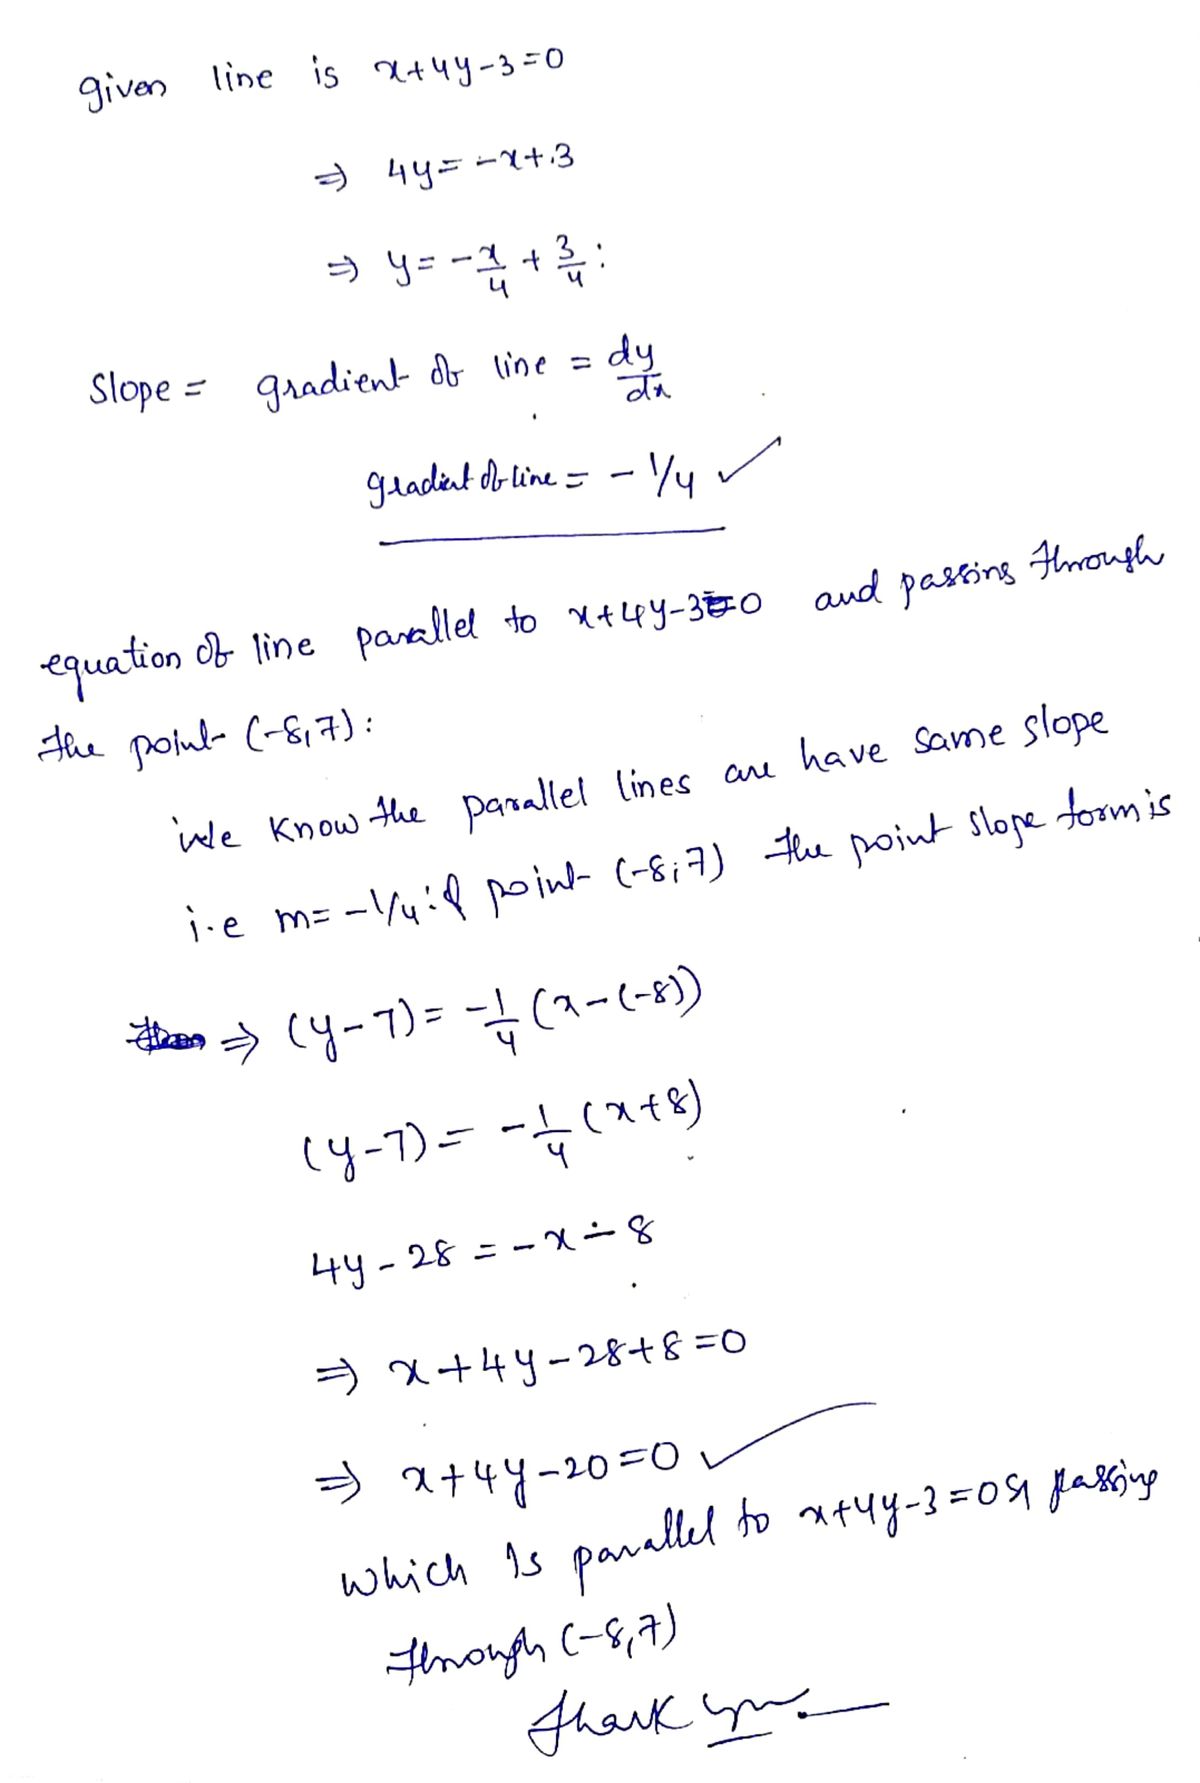 given line is x+4y-3=0
⇒ 4y=-x+3
⇒ y=-x/4+3/4:
Slope = gradient of line = dy/dx
gradient of line = -1/4 ✓
equation of line parallel to x+4y-3=0 and passing through
the point (-8,7):
we know the parallel lines are have same slope
i.e m=-1/4; & point (-8,7) the point slope form is
⇒ (y-7)=-1/4(x-(-8))
(y-7)=-1/4(x+8)
4y-28=-x-8
⇒ x+4y-28+8=0
⇒ x+4y-20=0 ✓
which is parallel to x+4y-3=0 & passing
through (-8,7)
thank you